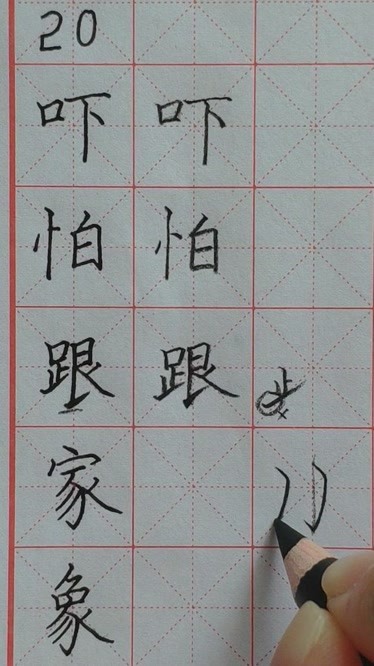 20
吓 吓
怕 怕
跟 跟
家
象